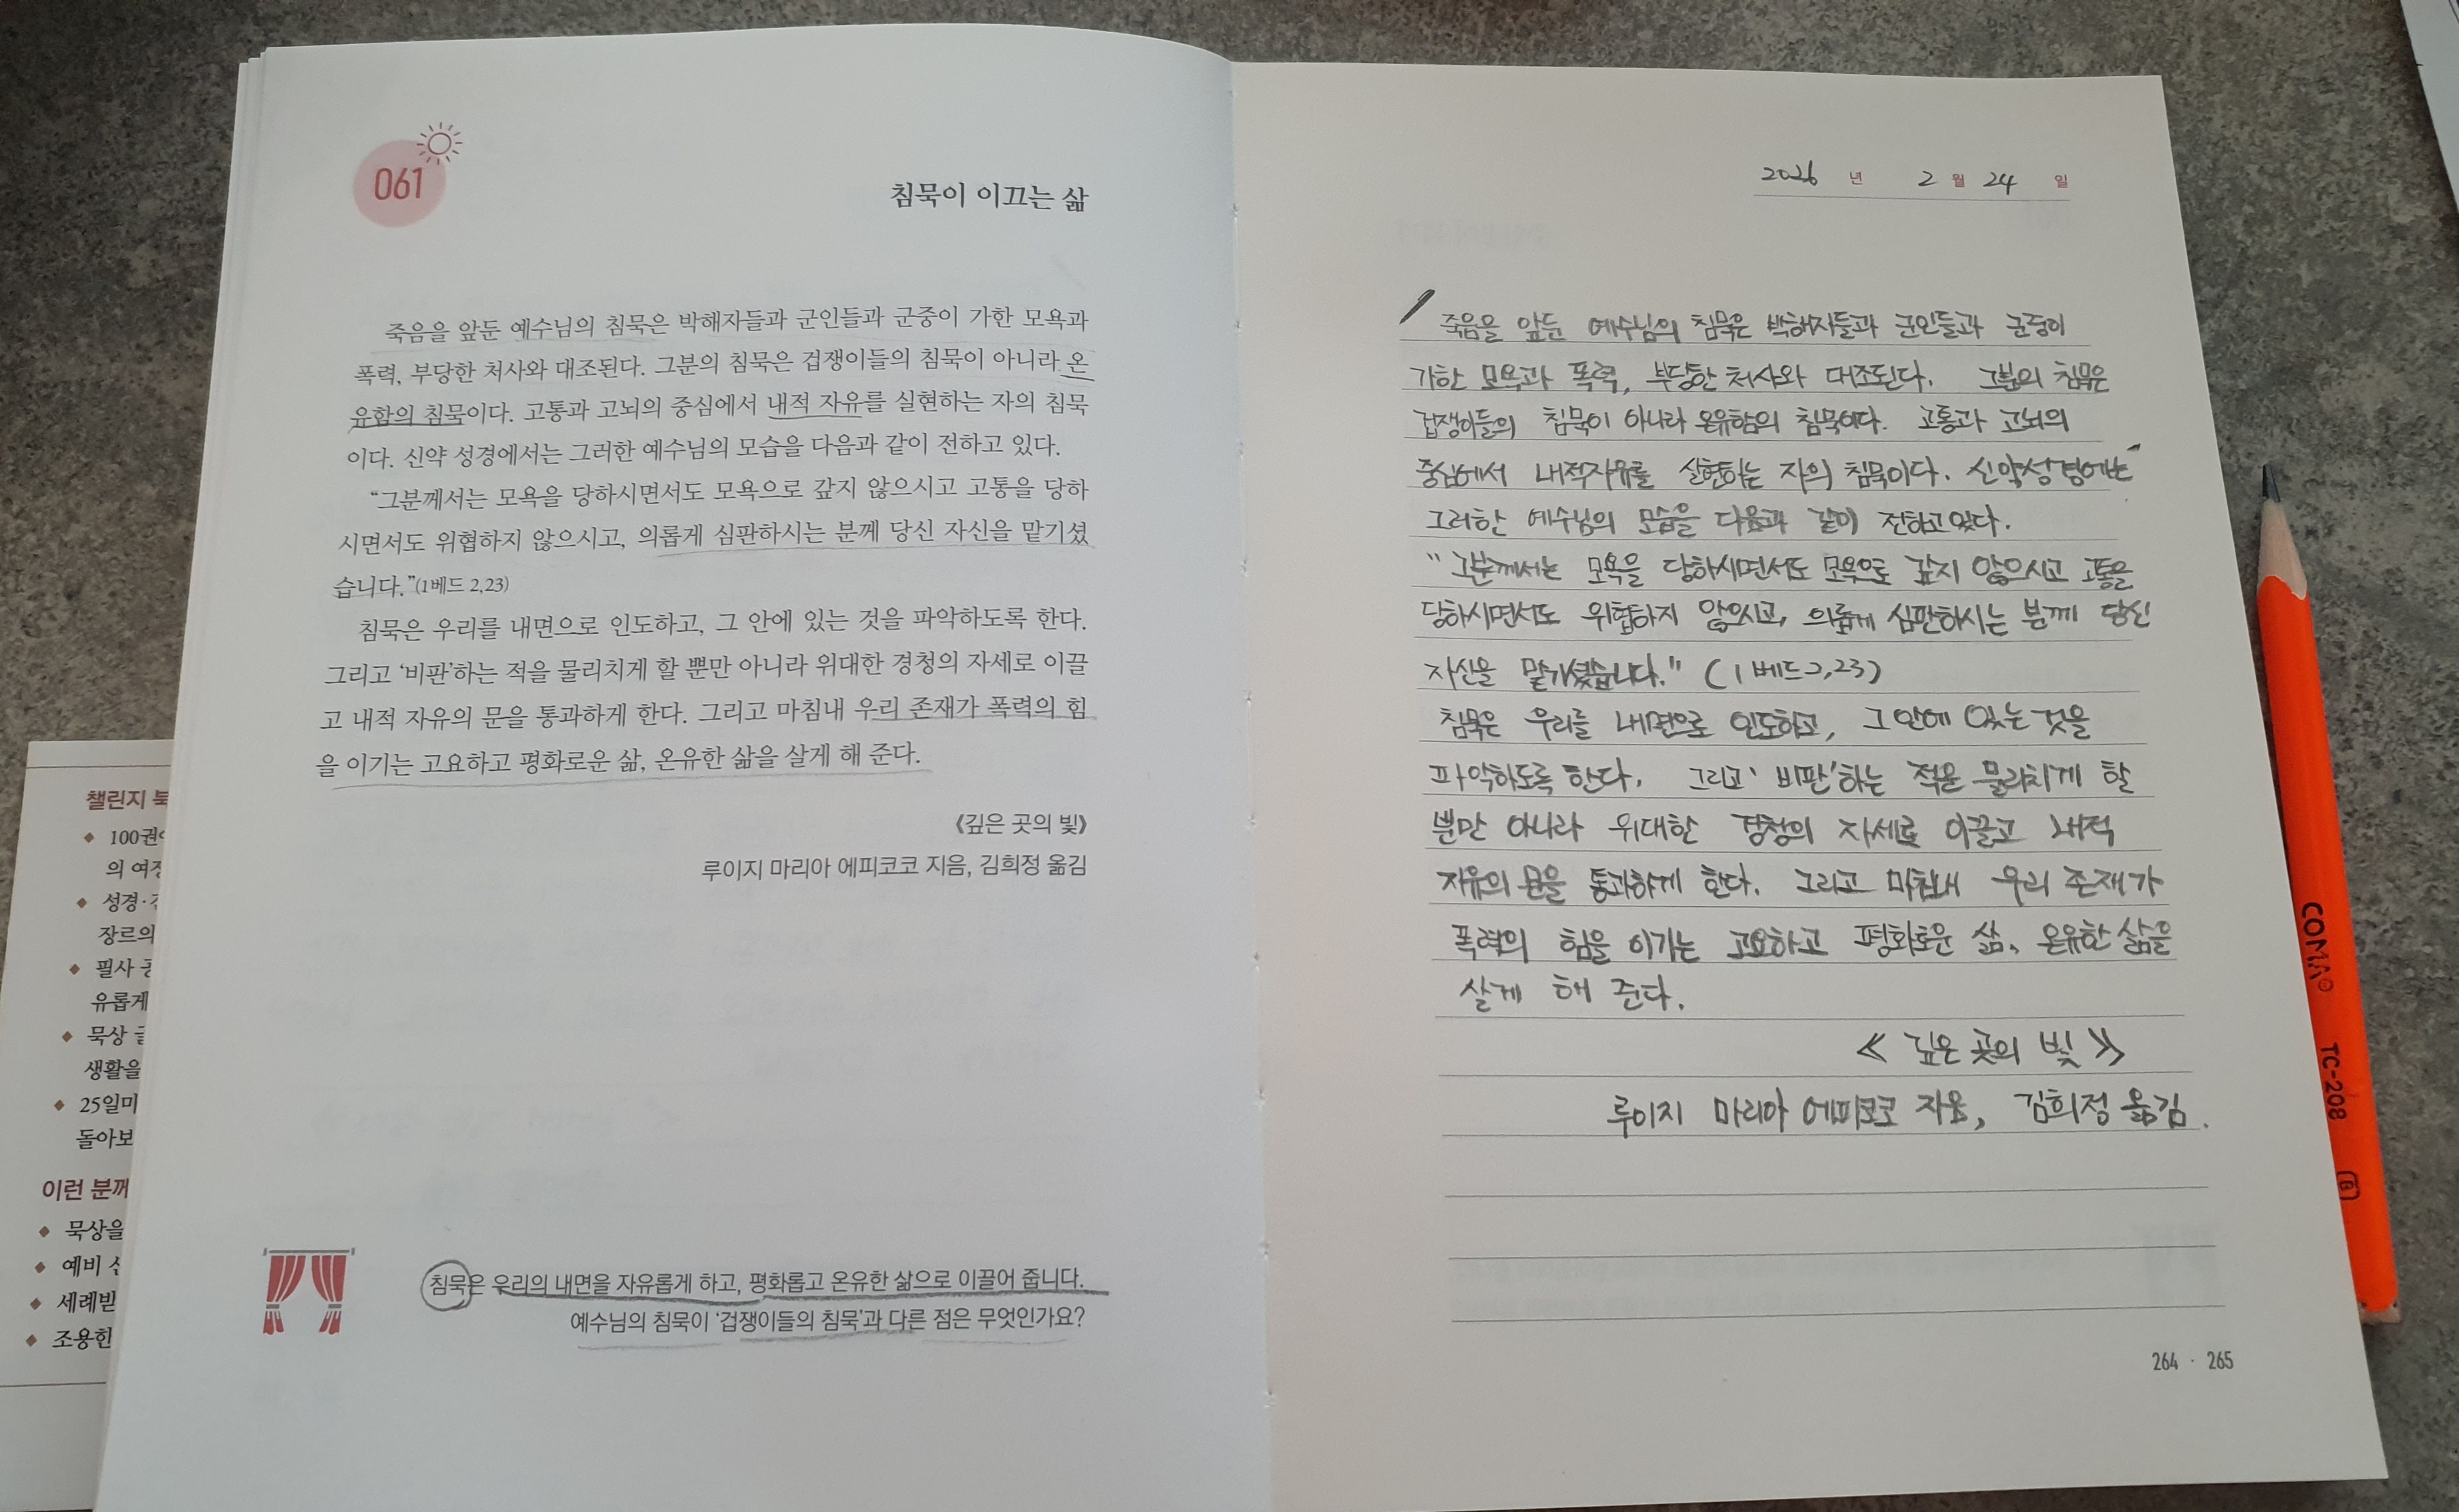 061
침묵이 이끄는 삶
죽음을 앞둔 예수님의 침묵은 박해자들과 군인들과 군중이 가한 모욕과
폭력, 부당한 처사와 대조된다. 그분의 침묵은 겁쟁이들의 침묵이 아니라 온
유함의 침묵이다. 고통과 고뇌의 중심에서 내적 자유를 실현하는 자의 침묵
이다. 신약 성경에서는 그러한 예수님의 모습을 다음과 같이 전하고 있다.
“그분께서는 모욕을 당하시면서도 모욕으로 갚지 않으시고 고통을 당하
시면서도 위협하지 않으시고, 의롭게 심판하시는 분께 당신 자신을 맡기셨
습니다.”(1베드 2,23)
침묵은 우리를 내면으로 인도하고, 그 안에 있는 것을 파악하도록 한다.
그리고 ‘비판’하는 적을 물리치게 할 뿐만 아니라 위대한 경청의 자세로 이끌
고 내적 자유의 문을 통과하게 한다. 그리고 마침내 우리 존재가 폭력의 힘
을 이기는 고요하고 평화로운 삶, 온유한 삶을 살게 해 준다.
《깊은 곳의 빛》
루이지 마리아 에피코코 지음, 김희정 옮김
침묵은 우리의 내면을 자유롭게 하고, 평화롭고 온유한 삶으로 이끌어 줍니다.
예수님의 침묵이 ‘겁쟁이들의 침묵’과 다른 점은 무엇인가요?
챌린지 북
100권
의 여정
성경·
장르의
필사
유롭게
묵상 글
생활을
25일마
돌아보
이런 분께
묵상을
예비 신
세례받
조용한
2026 년 2 월 24 일
죽음을 앞둔 예수님의 침묵은 박해자들과 군인들과 군중이
가한 모욕과 폭력, 부당한 처사와 대조된다. 그분의 침묵은
겁쟁이들의 침묵이 아니라 온유함의 침묵이다. 고통과 고뇌의
중심에서 내적자유를 실현하는 자의 침묵이다. 신약성경에는
그러한 예수님의 모습을 다음과 같이 전하고 있다.
"그분께서는 모욕을 당하시면서도 모욕으로 갚지 않으시고 고통을
당하시면서도 위협하지 않으시고, 의롭게 심판하시는 분께 당신
자신을 맡기셨습니다." (1 베드2,23)
침묵은 우리를 내면으로 인도하고, 그 안에 있는 것을
파악하도록 한다. 그리고 '비판'하는 적을 물리치게 할
뿐만 아니라 위대한 경청의 자세로 이끌고 내적
자유의 문을 통과하게 한다. 그리고 마침내 우리 존재가
폭력의 힘을 이기는 고요하고 평화로운 삶, 온유한 삶을
살게 해 준다.
《 깊은 곳의 빛 》
루이지 마리아 에피코코 지음, 김희정 옮김.
264 · 265
COMA
TC-208
B